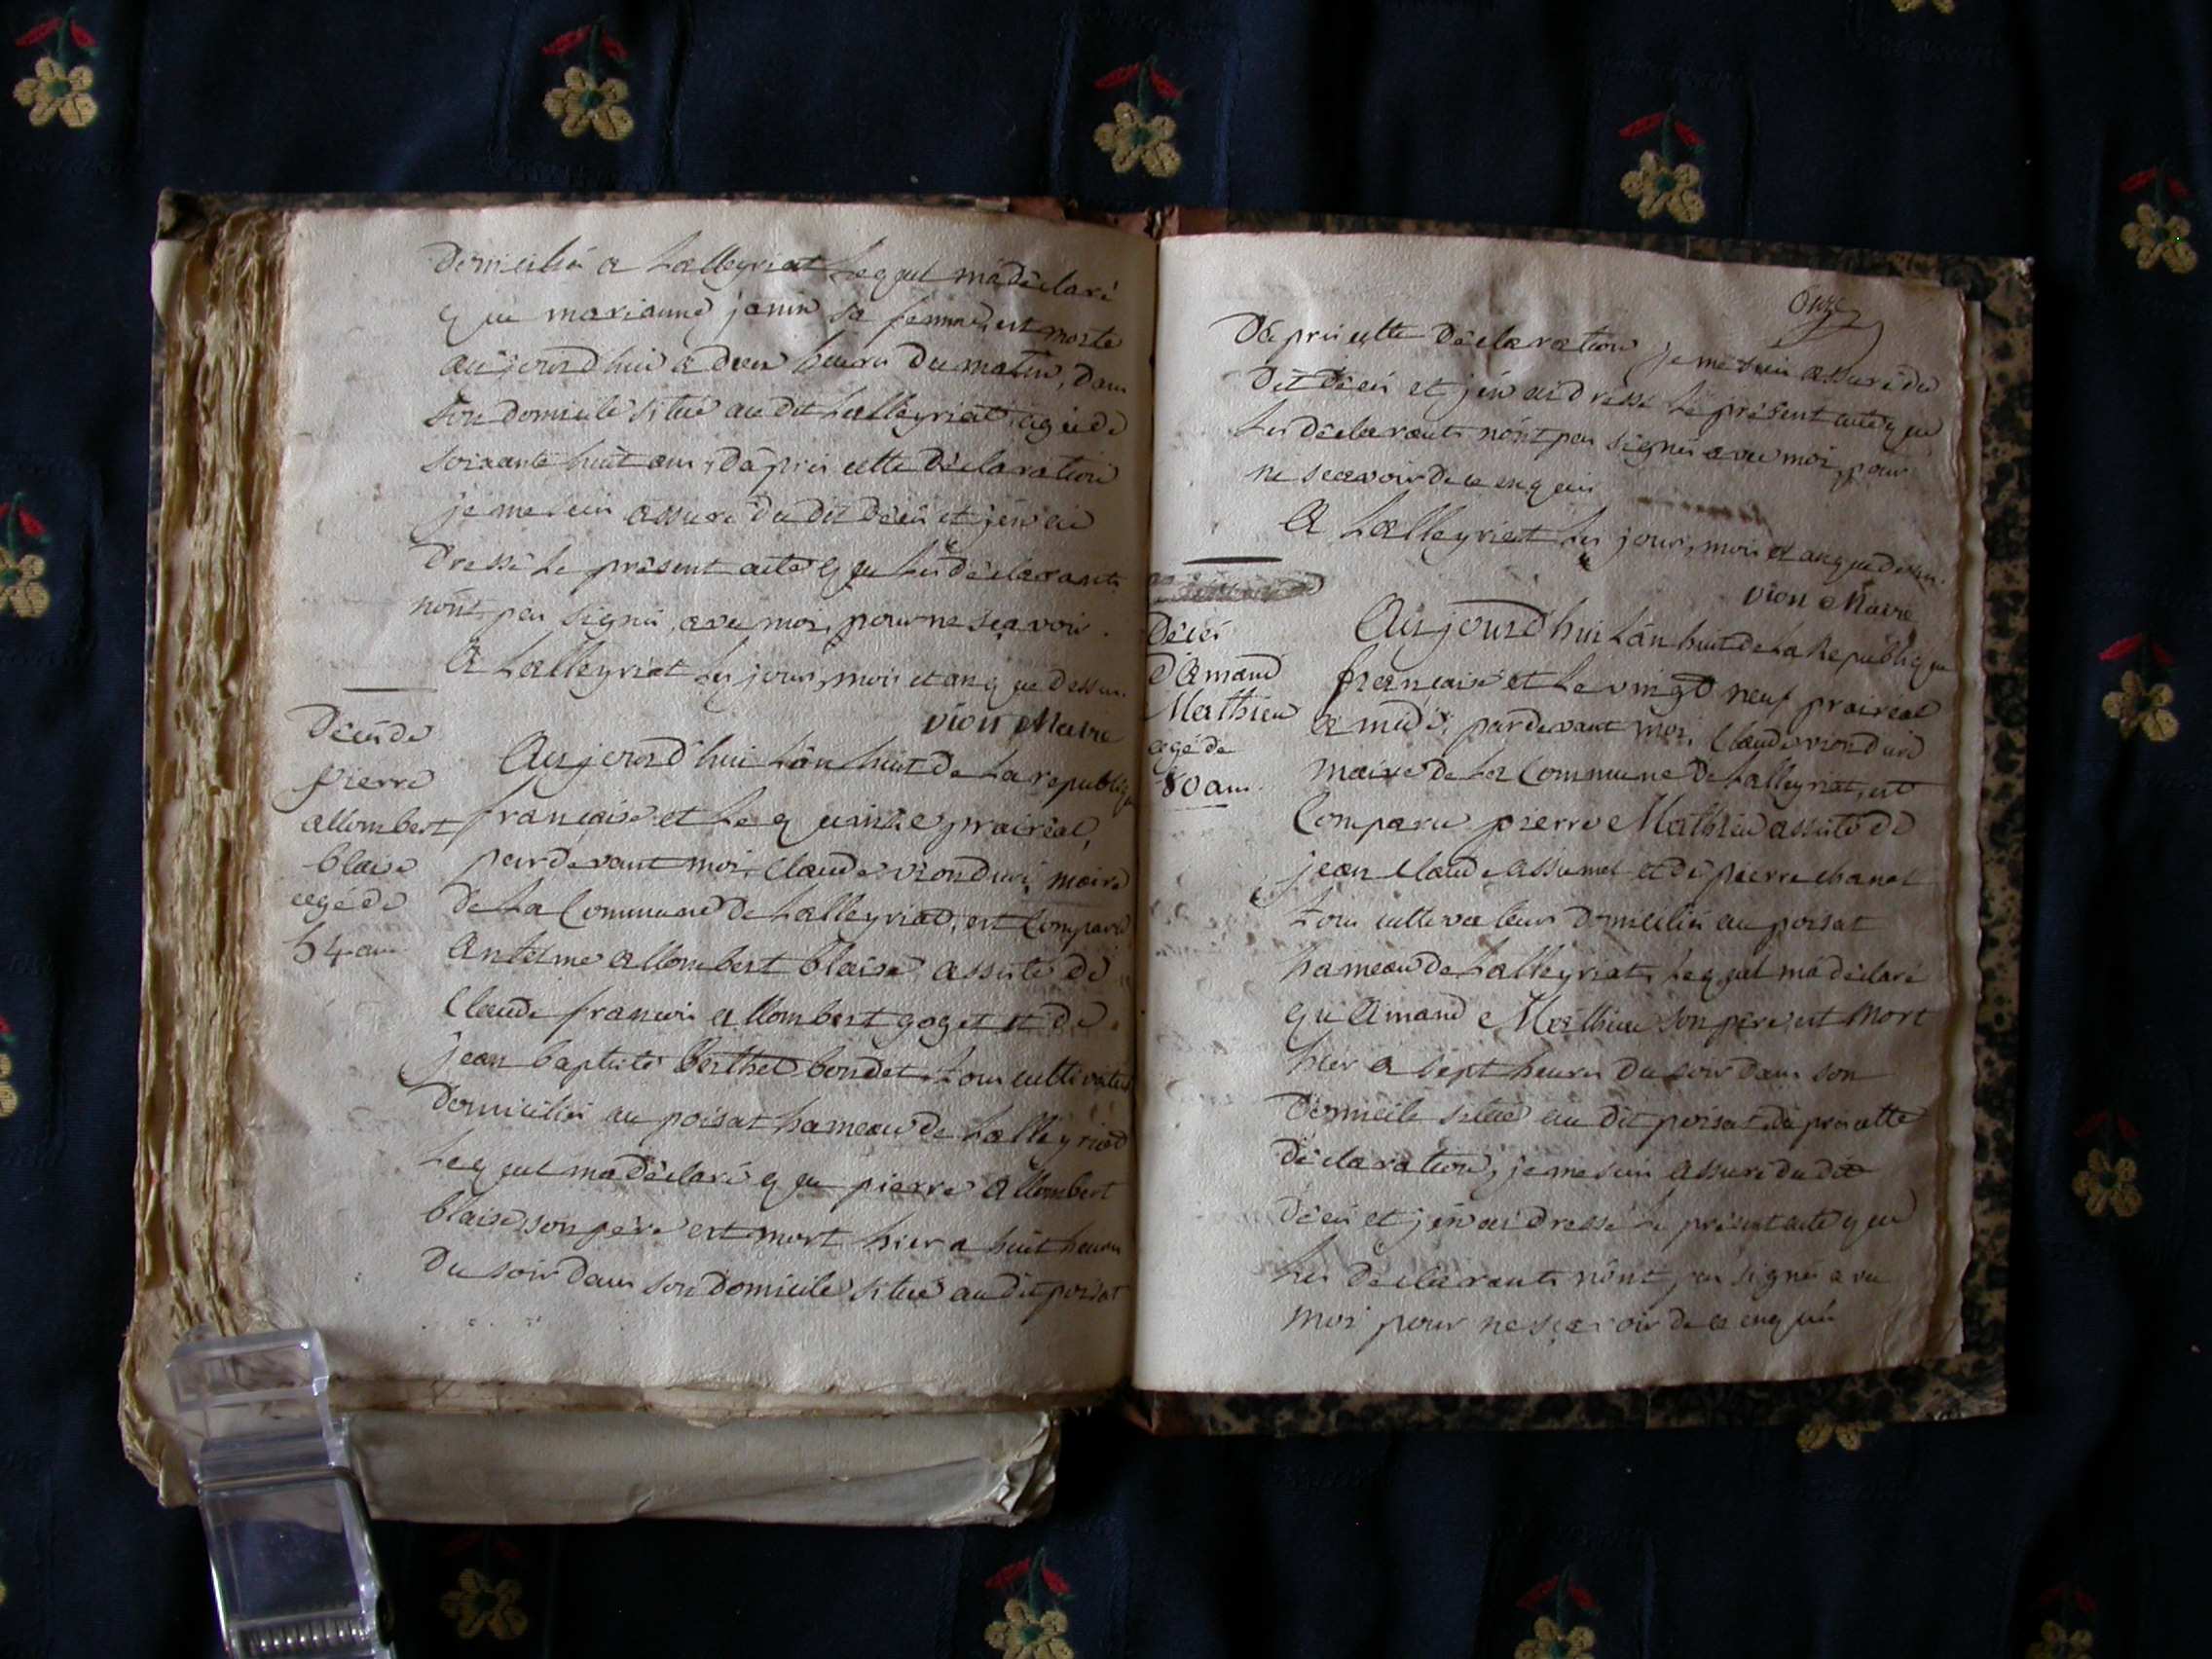 domicilié a Lalleyriat Lequel m'a déclaré
que marianne janin sa femme est morte
aujourd'hui a deux heures du matin, dans
son domicile situé au dit Lalleyriat, agée de
soixante huit ans, d'aprés cette déclaration
je me suis assuré du dit décés et j'en ai
dressé Le présent acte que Les déclarants
n'ont pas signés, avec moi, pour ne sçavoir.
A Lalleyriat Les jour, mois et an que dessus.
vion Maire
Décés de
pierre
allombert
blaise
agé de
54 ans
Aujourd'hui L'an huit de La republique
française et Le quinze prairéal,
pardevant moi, Claude vion duri, maire
de La Commune de Lalleyriat, est Comparu
antelme allombert blaise, assisté de
Claude francois allombert goget et de
jean baptiste berthet bondet, tous cultivateurs
domiciliés au poisat hameau de Lalleyriat
Lequel m'a déclaré que pierre allombert
blaise, son pére est mort hier a huit heures
du soir dans son domicile situé au dit poisat
Onze
D'aprés cette déclaration je me suis assuré du
dit décés et j'en ai dressé Le présent acte que
Les déclarants n'ont pas signés avec moi, pour
ne sçavoir de ce enquis
A Lalleyriat Les jour, mois et an que dessus.
vion Maire
Décés
d'Amand
Mathieu
agé de
80 ans.
Aujourd'hui L'an huit de La Republique
française et Le vingt neuf prairéal
a midi, pardevant moi, Claude vion duri
maire de La Commune de Lalleyriat, est
Comparu pierre Mathieu assisté de
jean Claude assumel et de pierre chanel
tous cultivateurs domiciliés au poisat
hameau de Lalleyriat, Lequel m'a déclaré
qu'Amand Mathieu son pere est mort
hier a sept heures du soir dans son
domicile situé au dit poisat, d'aprés cette
déclaration, je me suis assuré du dit
décés et j'en ai dressé Le présent acte que
Les déclarants n'ont pas signés avec
moi pour ne sçavoir de ce enquis